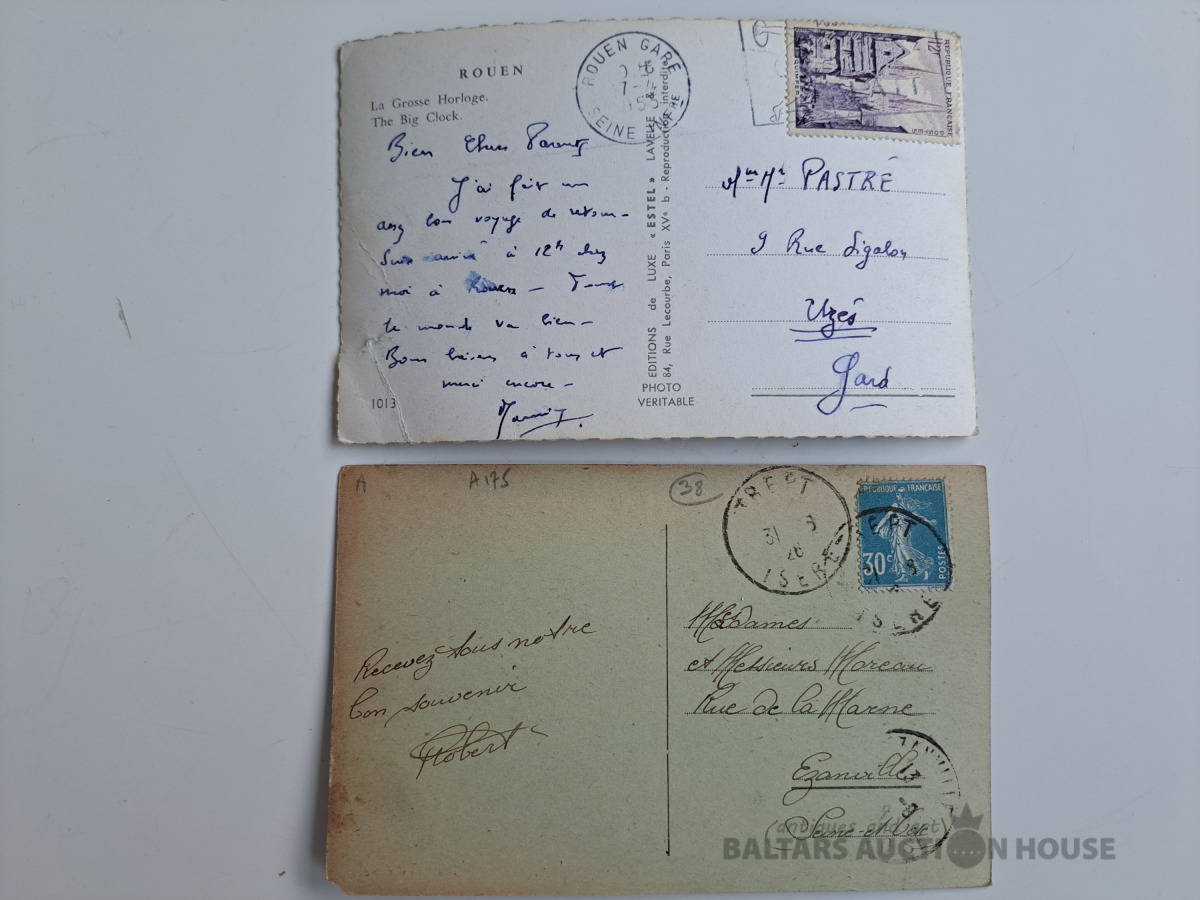 ROUEN
La Grosse Horloge.
The Big Clock.
Bien Chers Parents
J'ai fait un
assez bon voyage de retour -
Suis arrivé à 12h chez
moi à Rouen - Tout
le monde va bien -
Bons baisers à tous et
merci encore -
1013
ROUEN GARE
SEINE
EDITIONS de LUXE « ESTEL » LAVELLE &
84, Rue Lecourbe, Paris XVe b - Reproduction interdite
PHOTO
VERITABLE
12f
REPUBLIQUE FRANÇAISE
POSTES
QUIMPER
Mme Mr PASTRÉ
9 Rue Sigalon
Uzés
Gard
A
A175
38
TREPT
31 8
26
ISERE
REPUBLIQUE FRANÇAISE
30c
POSTES
TREPT
ISERE
Recevez tous notre
bon souvenir
Robert
Mesdames
et Messieurs Moreau
Rue de la Marne
Ezanville
(Seine-et-Oise)
antiques and art
BALTARS AUCTION HOUSE